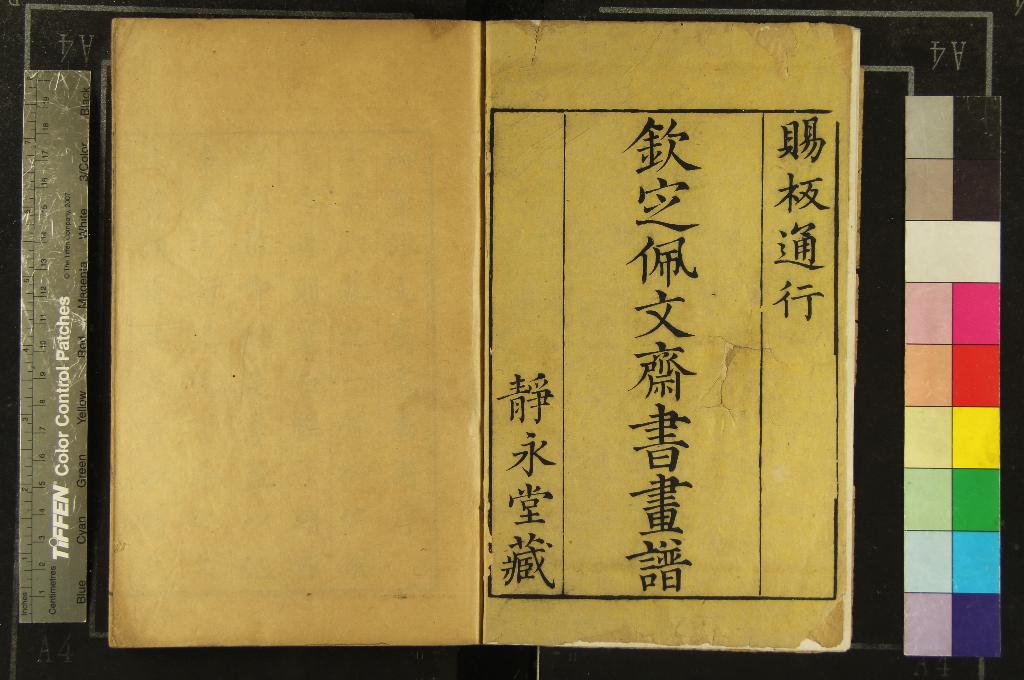 賜板通行
欽定佩文齋書畫譜
靜永堂藏
A4
A4
A4
A4
Inches
Centimetres
TIFFEN Color Control Patches
© The Tiffen Company, 2007
Blue Cyan Green Yellow Red Magenta White 3/Color Black